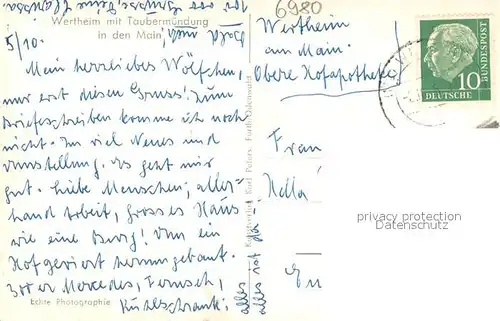 6980
Wertheim mit Taubermündung
in den Main
5/10.
Mein herrliebes Wölfchen,
nur erst diesen Gruss! Zum
Briefschreiben komme ich noch
nicht. Zu viel Neues und
Umstellung. Es geht mir
gut. Liebe Menschen, aller-
hand Arbeit, grosses Haus
wie eine Burg! Um ein
Hofgeviert herumgebaut.
300er Mercedes, Fernseh,
Kühlschrank,
alles
alles ist da!
Echte Photographie
Kunstverlag Karl Peters, Fürth/Odenwald
Wertheim
am Main.
Obere Hofapotheke
10
DEUTSCHE
BUNDESPOST
Frau
Hella
privacy protection
Datenschutz